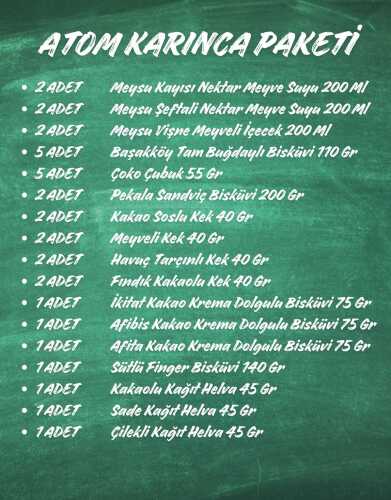 ATOM KARINCA PAKETİ
• 2 ADET Meysu Kayısı Nektar Meyve Suyu 200 Ml
• 2 ADET Meysu Şeftali Nektar Meyve Suyu 200 Ml
• 2 ADET Meysu Vişne Meyveli İçecek 200 Ml
• 5 ADET Başakköy Tam Buğdaylı Bisküvi 110 Gr
• 5 ADET Çoko Çubuk 55 Gr
• 2 ADET Pekala Sandviç Bisküvi 200 Gr
• 2 ADET Kakao Soslu Kek 40 Gr
• 2 ADET Meyveli Kek 40 Gr
• 2 ADET Havuç Tarçınlı Kek 40 Gr
• 2 ADET Fındık Kakaolu Kek 40 Gr
• 1 ADET İkitat Kakao Krema Dolgulu Bisküvi 75 Gr
• 1 ADET Afibis Kakao Krema Dolgulu Bisküvi 75 Gr
• 1 ADET Afita Kakao Krema Dolgulu Bisküvi 75 Gr
• 1 ADET Sütlü Finger Bisküvi 140 Gr
• 1 ADET Kakaolu Kağıt Helva 45 Gr
• 1 ADET Sade Kağıt Helva 45 Gr
• 1 ADET Çilekli Kağıt Helva 45 Gr